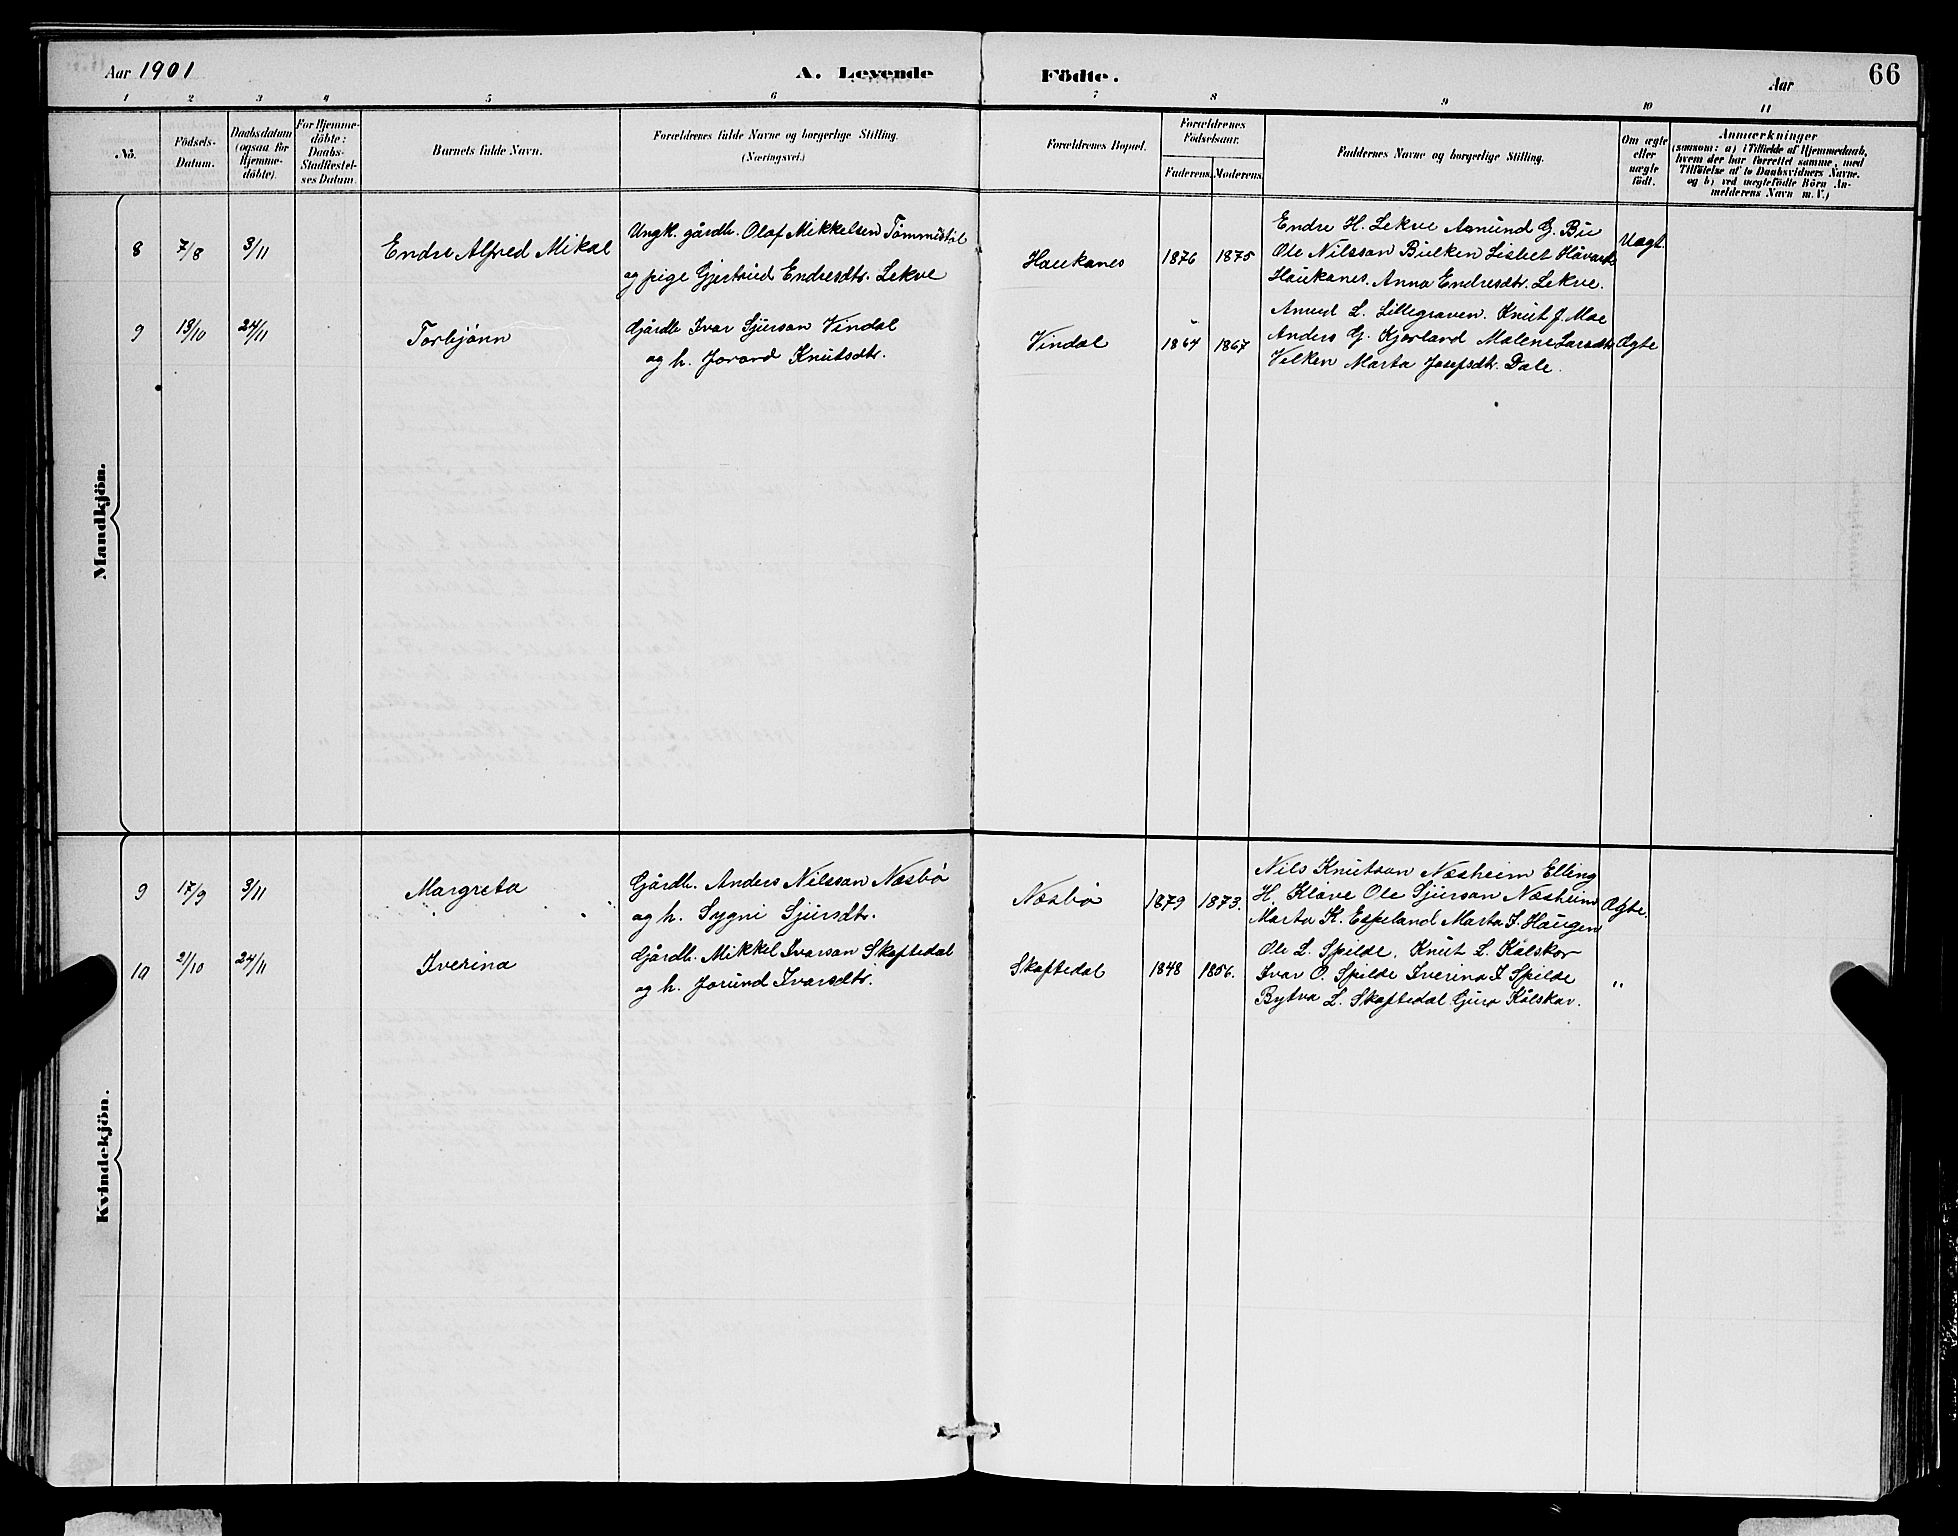 Aar 1901
A. Levende Födte.
Aar
66
1 2 3 4 5 6 7 8 9 10 11
No.
Födsels-
Datum.
Daabsdatum
(ogsaa for
Hjemme-
döbte).
For Hjemme-
döbte:
Daabs-
Stadfæstel-
ses Datum.
Barnets fulde Navn.
Forældrenes fulde Navne og borgerlige Stilling.
(Næringsvei.)
Forældrenes Bopæl.
Forældrenes
Födselsaar.
Faderens. Moderens.
Faddernes Navne og borgerlige Stilling.
Om ægte
eller
uægte
födt.
Anmærkninger
(saasom: a) i Tilfælde af Hjemmedaab,
hvem der har forrettet samme, med
Tilföielse af to Daabsvidners Navne.
og b) ved uægtefödte Börn An-
melderens Navn m. V.)
Mandkjön.
8 7/8 3/11 Endre Alfred Mikal
Ungk. gårdb. Olaf Mikkelsen Tömmestöl
og pige Gjertrud Endresdtr. Lekve
Haukanes 1876 1875
Endre H. Lekve Asmund G. Bu
Ole Nilsson Bulken Lisbet Håvards
Haukanes. Anna Endresdtr. Lekve.
Uægt.
9 13/10 24/11 Torbjönn
Gårdb Ivar Sjurson Vindal
og h. Jorand Knutsdtr.
Vindal 1864 1867
Amund L. Lillegraven. Knut J. Moe
Anders G. Kjerland Malene Larsdtr
Velken Marta Josefsdtr. Dale.
Ægte
Kvindekjön.
9 17/9 3/11 Margreta
Gårdb. Anders Nilsson Næsbö
og h. Sygni Sjursdtr.
Næsbö 1879 1873.
Nils Knutson Næsheim Elling
H. Kløve Ole Sjurson Næsheim
Marta K. Espeland Marta I. Haugen
Ægte.
10 2/10 24/11 Iverina
Gårdb. Mikkel Ivarson Skaftedal
og h. Jorund Ivarsdtr.
Skaftedal 1848 1856.
Ole L. Spilde. Knut L. Kålskor
Ivar O. Spilde Iverina I Spilde
Bytva L. Skaftedal Guro Kålskor.
"